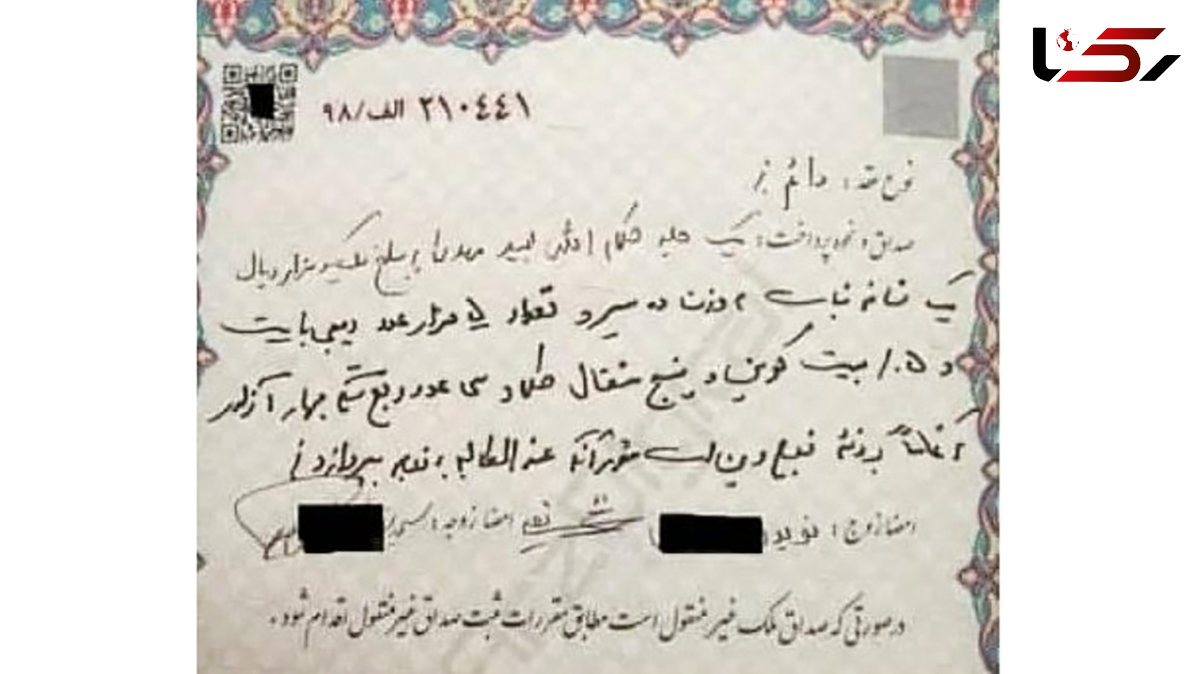 رکنا
۲۱۰۴۴۱ الف/۹۸
نوع عقد: دائم
صداق و نحوه پرداخت: یک جلد کلام الله مجید مهریه به مبلغ یک هزار ریال
یک شاخه نبات به وزن ده سیر و تعداد ۵ هزار عدد دیجی بایت
و ۰.۵ بیت کوین و پنج مثقال طلا و سی عدد ربع سکه بهار آزادی
که تماماً بذمه زوج دین است عندالمطالبه به زوجه بپردازد
امضا زوج: نوید امضا زوجه:
در صورتی که صداق ملک غیر منقول است مطابق مقررات ثبت صداق غیر منقول اقدام شود.